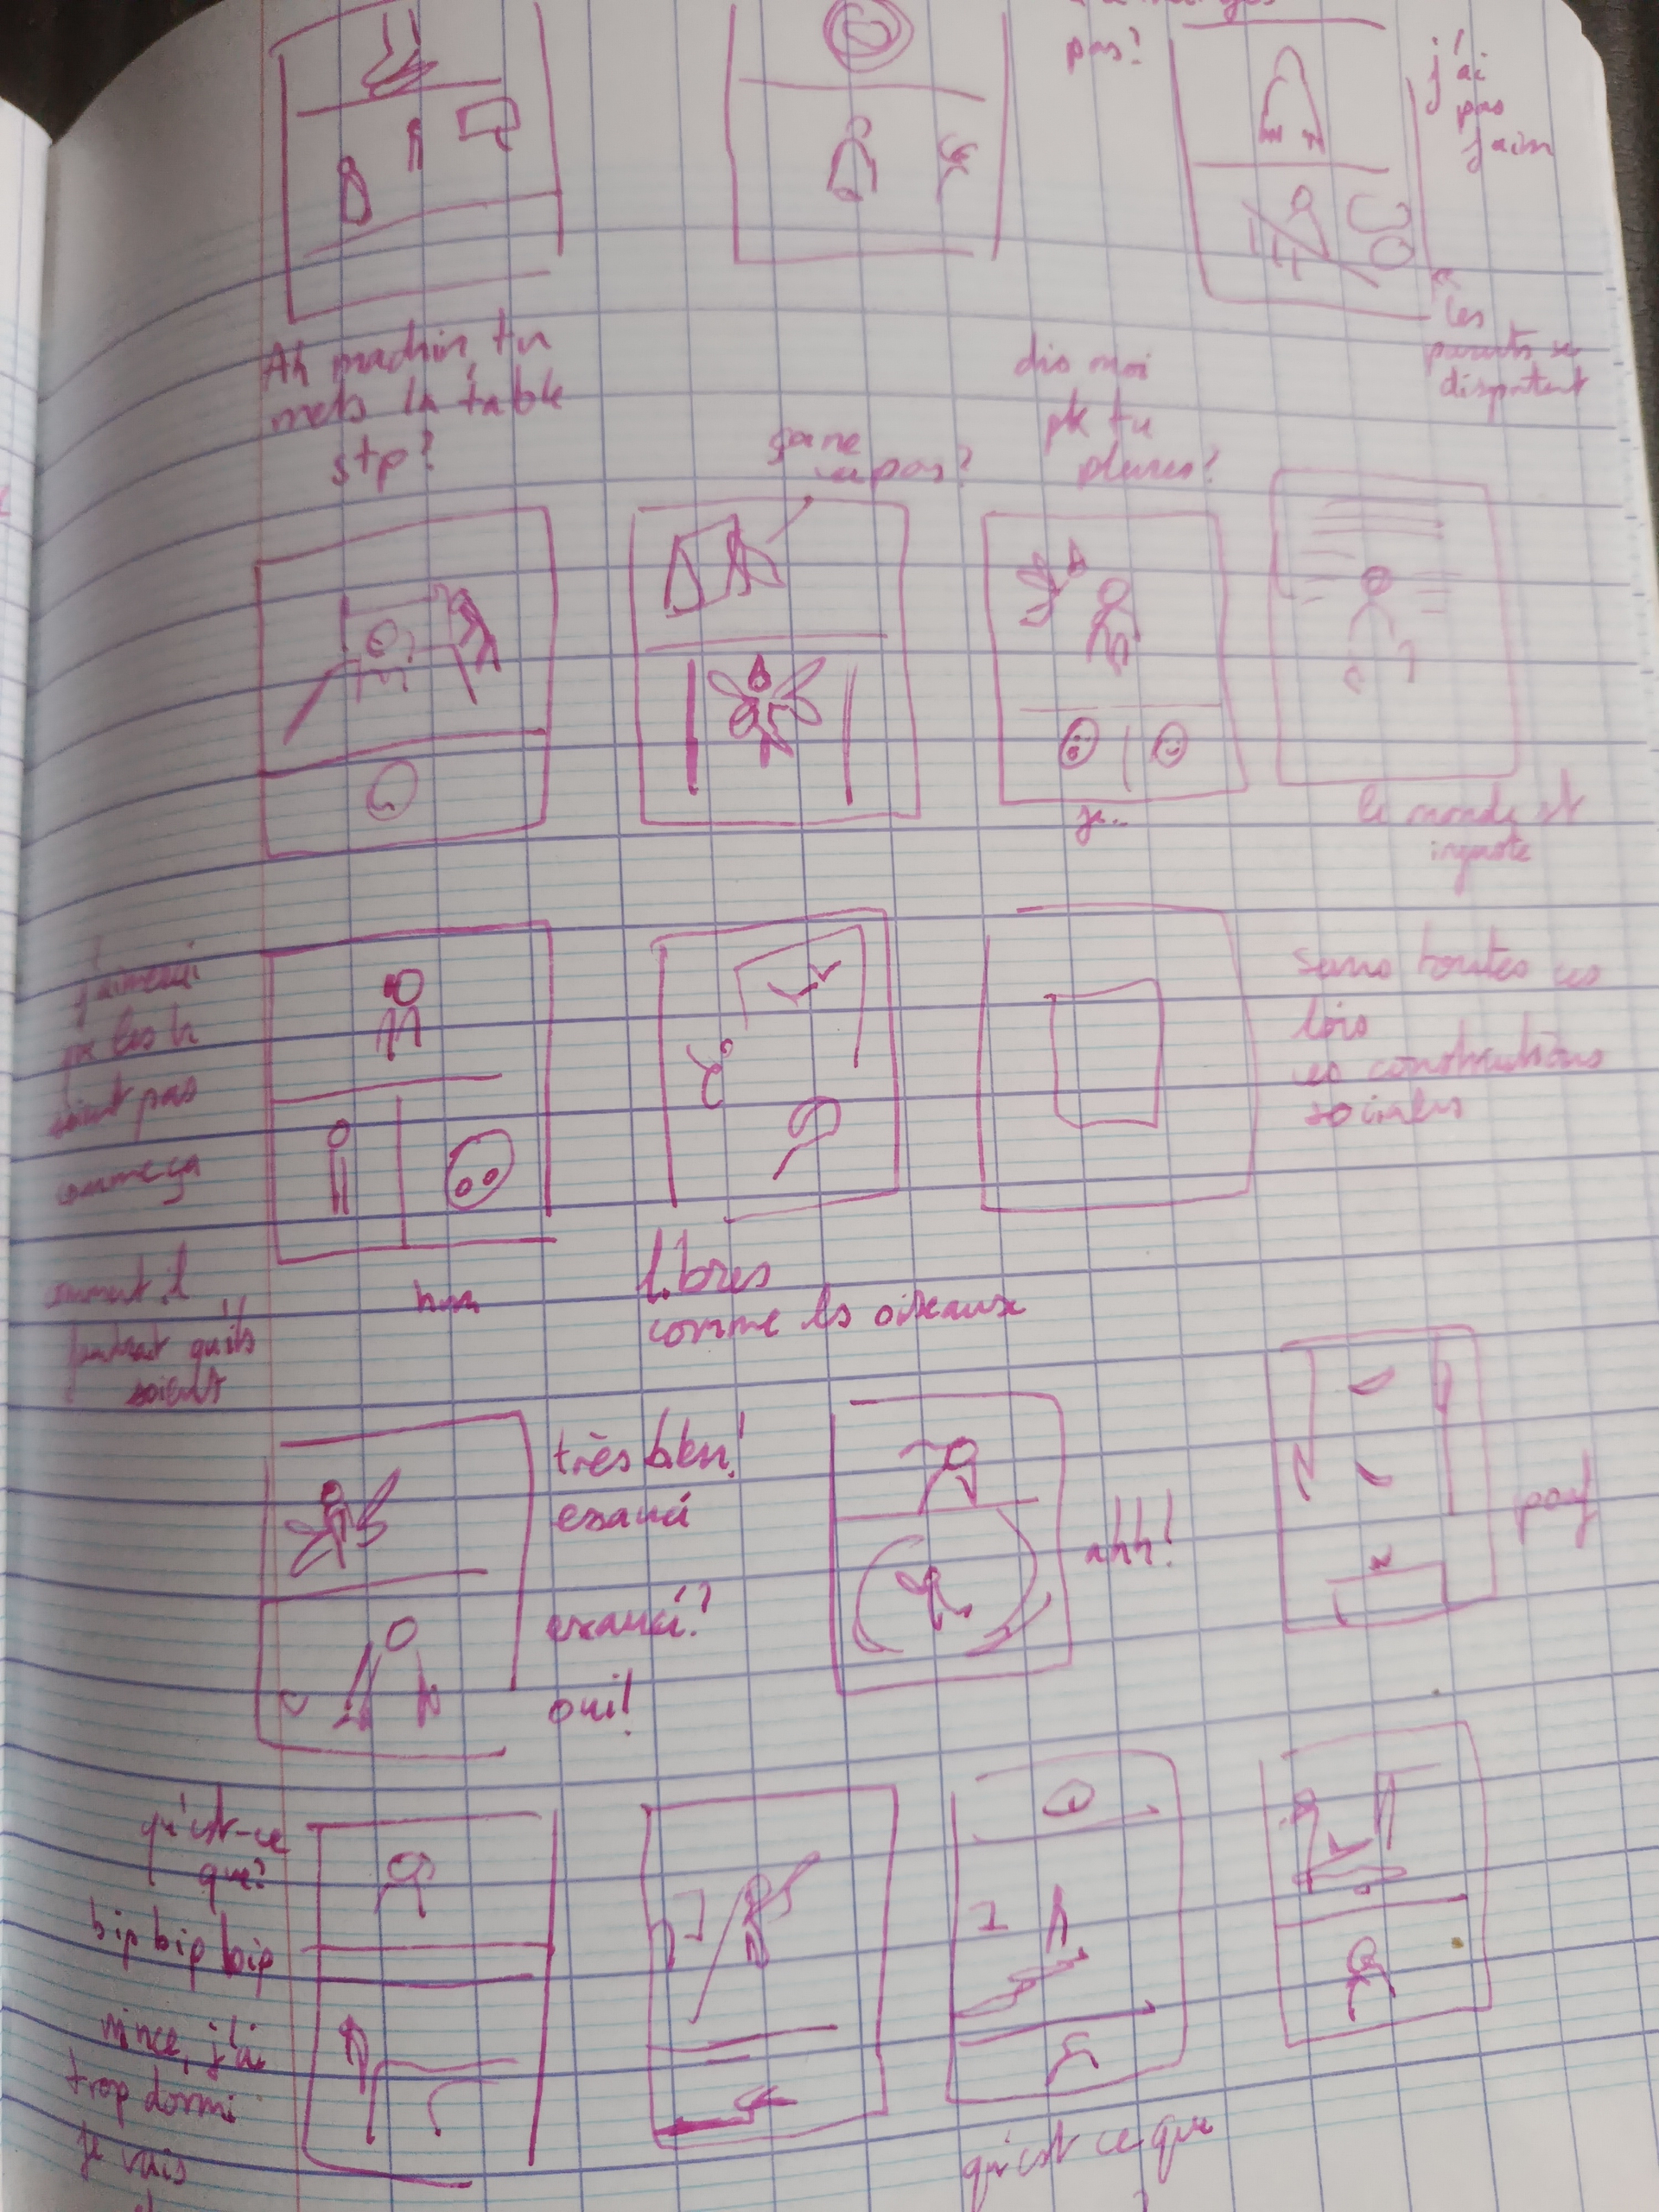 pas?
j'ai
pas
faim
les
parents se
disputent
Ah machin, tu
mets la table
stp?
ça ne
va pas?
dis moi
pk tu
pleures?
je..
le monde est
injuste
j'aimerai
que les h
soient pas
comme ça
comment il
faudrait qu'ils
soient
hum
libres
comme ls oiseaux
sans toutes ces
lois
ces constructions
sociales
très bien!
exaucé
exaucé?
oui!
ahh!
pouf
qu'est-ce
que?
bip bip bip
mince, j'ai
trop dormi
je vais
qu'est ce que